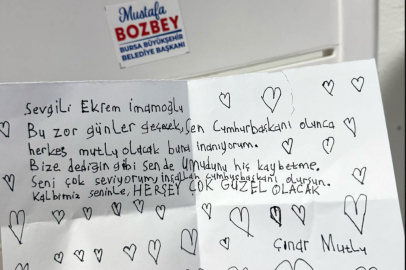 Mustafa
BOZBEY
BURSA BÜYÜKŞEHİR
BELEDİYE BAŞKANI
Sevgili Ekrem imamoğlu
Bu zor günler geçecek, Sen Cumhurbaşkanı olunca
herkes mutlu olacak buna inanıyorum.
Bize dediğin gibi sende Umudunu hiç kaybetme.
Seni çok seviyorum, inşallah cumhurbaşkanı olursun.
Kalbimiz seninle, HERŞEY ÇOK GÜZEL OLACAK
Çınar Mutlu